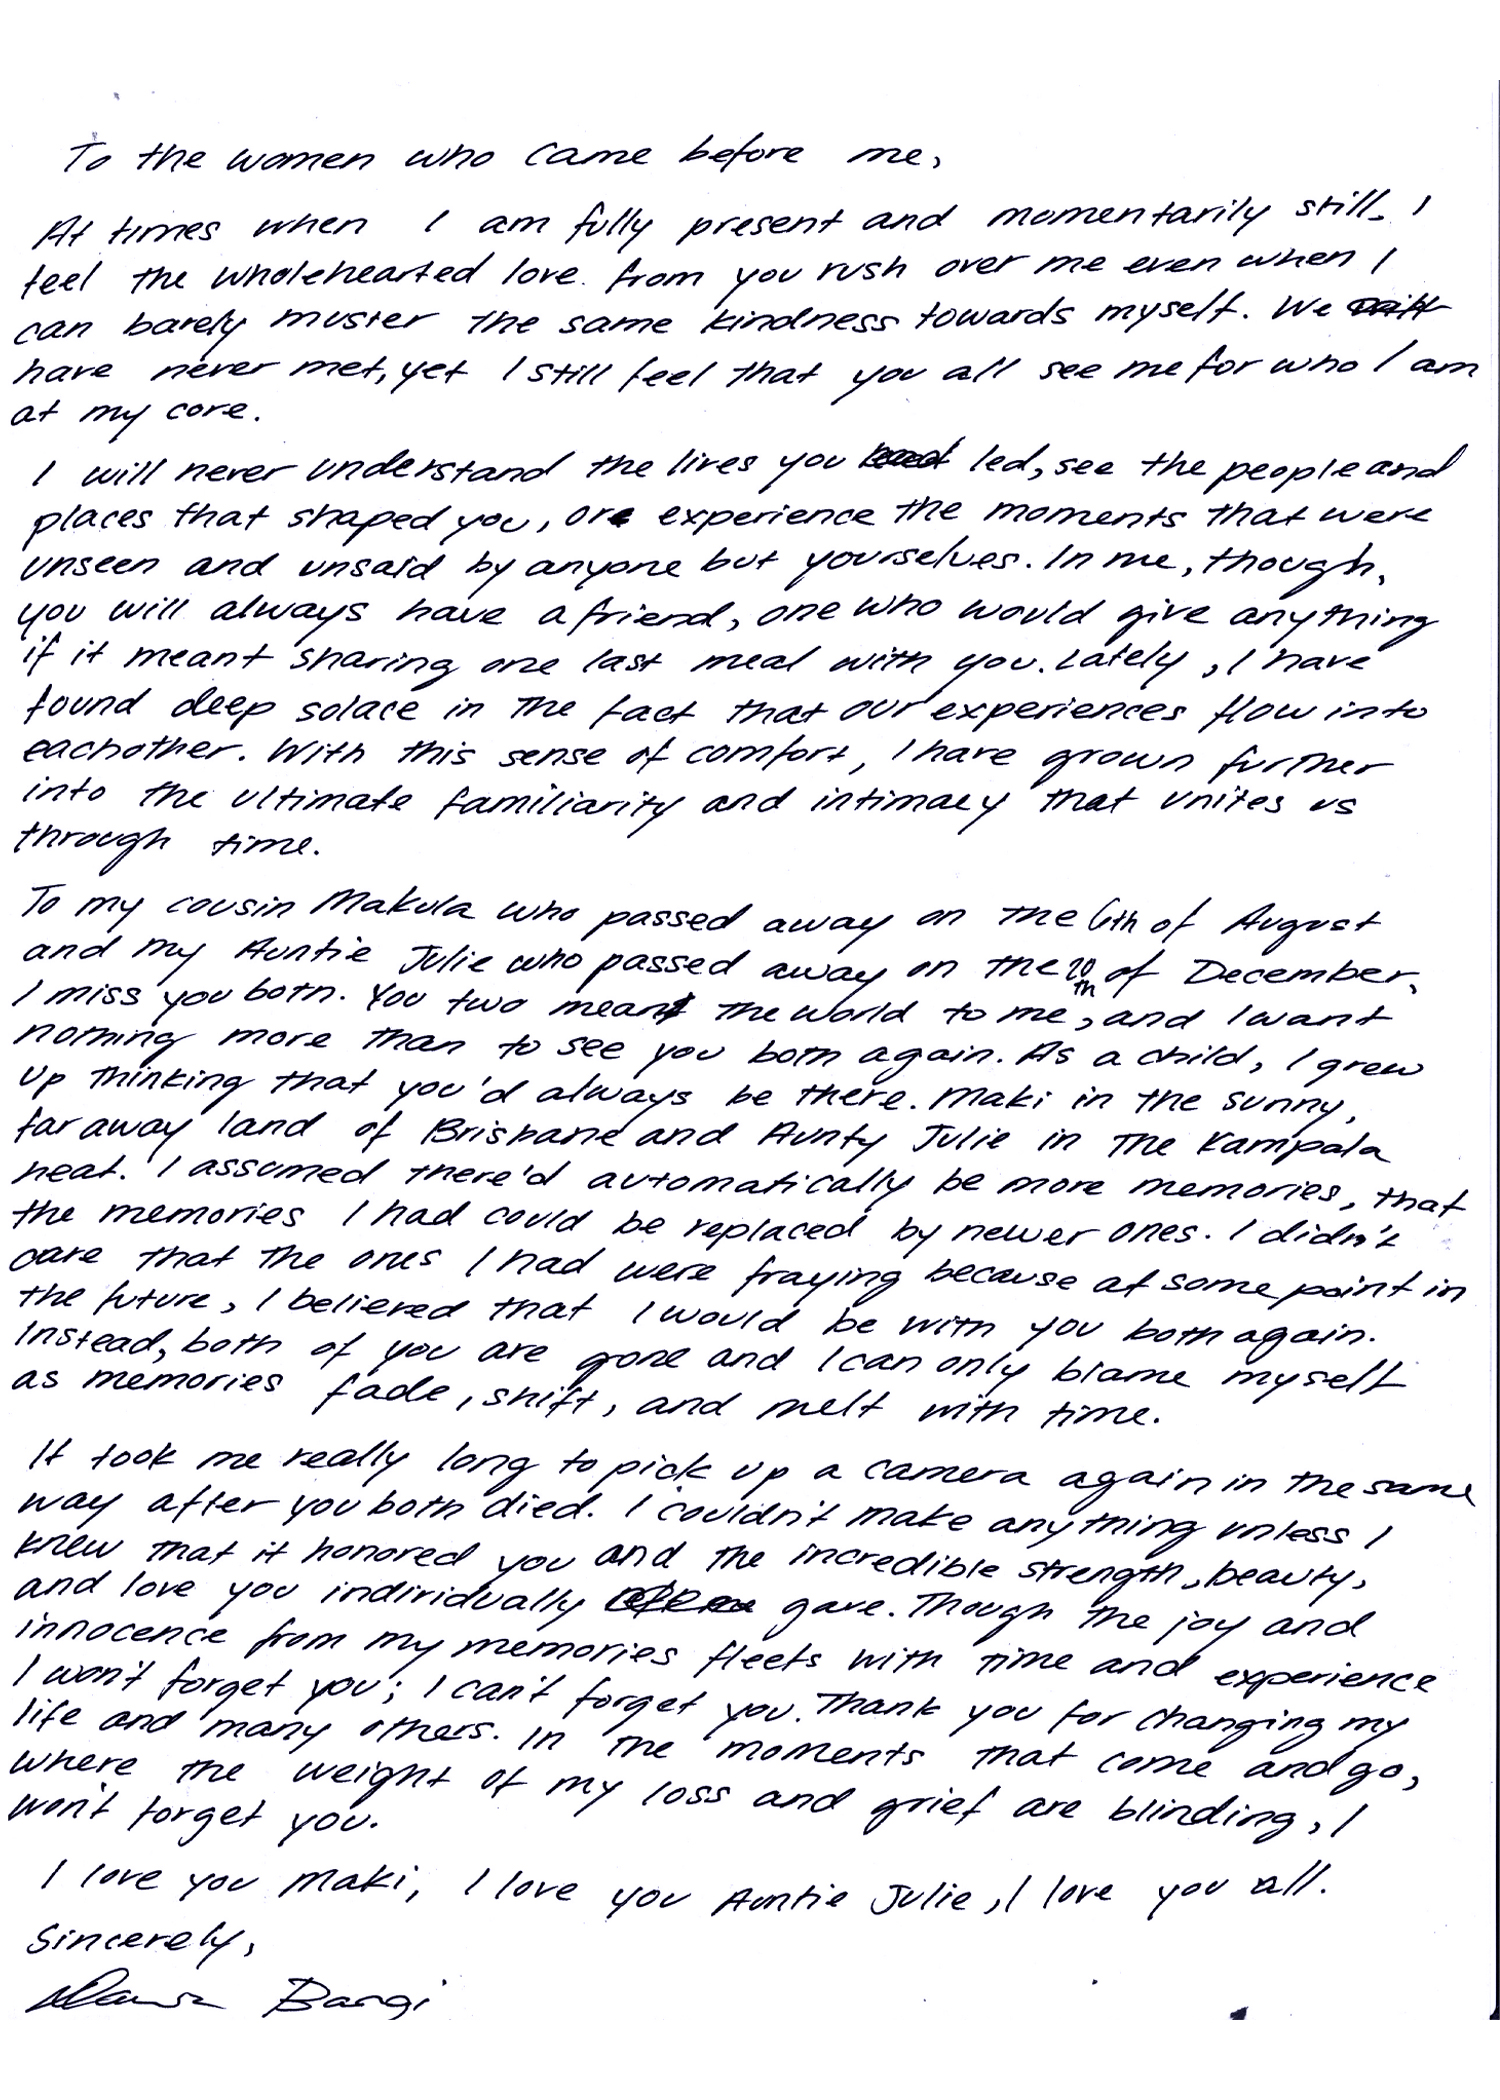 To the women who came before me,
At times when I am fully present and momentarily still, I
feel the wholehearted love from you rush over me even when I
can barely muster the same kindness towards myself. We
have never met, yet I still feel that you all see me for who I am
at my core.
I will never understand the lives you led, see the people and
places that shaped you, or experience the moments that were
unseen and unsaid by anyone but yourselves. In me, though,
you will always have a friend, one who would give anything
if it meant sharing one last meal with you. Lately, I have
found deep solace in the fact that our experiences flow into
eachother. With this sense of comfort, I have grown further
into the ultimate familiarity and intimacy that unites us
through time.
To my cousin Makula who passed away on the 6th of August
and my Auntie Julie who passed away on the 20th of December,
I miss you both. You two meant the world to me, and I want
nothing more than to see you both again. As a child, I grew
up thinking that you'd always be there. Maki in the sunny,
far away land of Brisbane and Aunty Julie in the Kampala
heat. I assumed there'd automatically be more memories, that
the memories I had could be replaced by newer ones. I didn't
care that the ones I had were fraying because at some point in
the future, I believed that I would be with you both again.
Instead, both of you are gone and I can only blame myself
as memories fade, shift, and melt with time.
It took me really long to pick up a camera again in the same
way after you both died. I couldn't make anything unless I
knew that it honored you and the incredible strength, beauty,
and love you individually gave. Though the joy and
innocence from my memories fleets with time and experience
I won't forget you; I can't forget you. Thank you for changing my
life and many others. In the moments that come and go,
where the weight of my loss and grief are blinding, I
won't forget you.
I love you Maki, I love you Auntie Julie, I love you all.
Sincerely,
Bangi